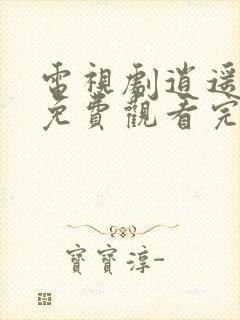 電視劇逍遥
免費觀看完
寶寶淳-